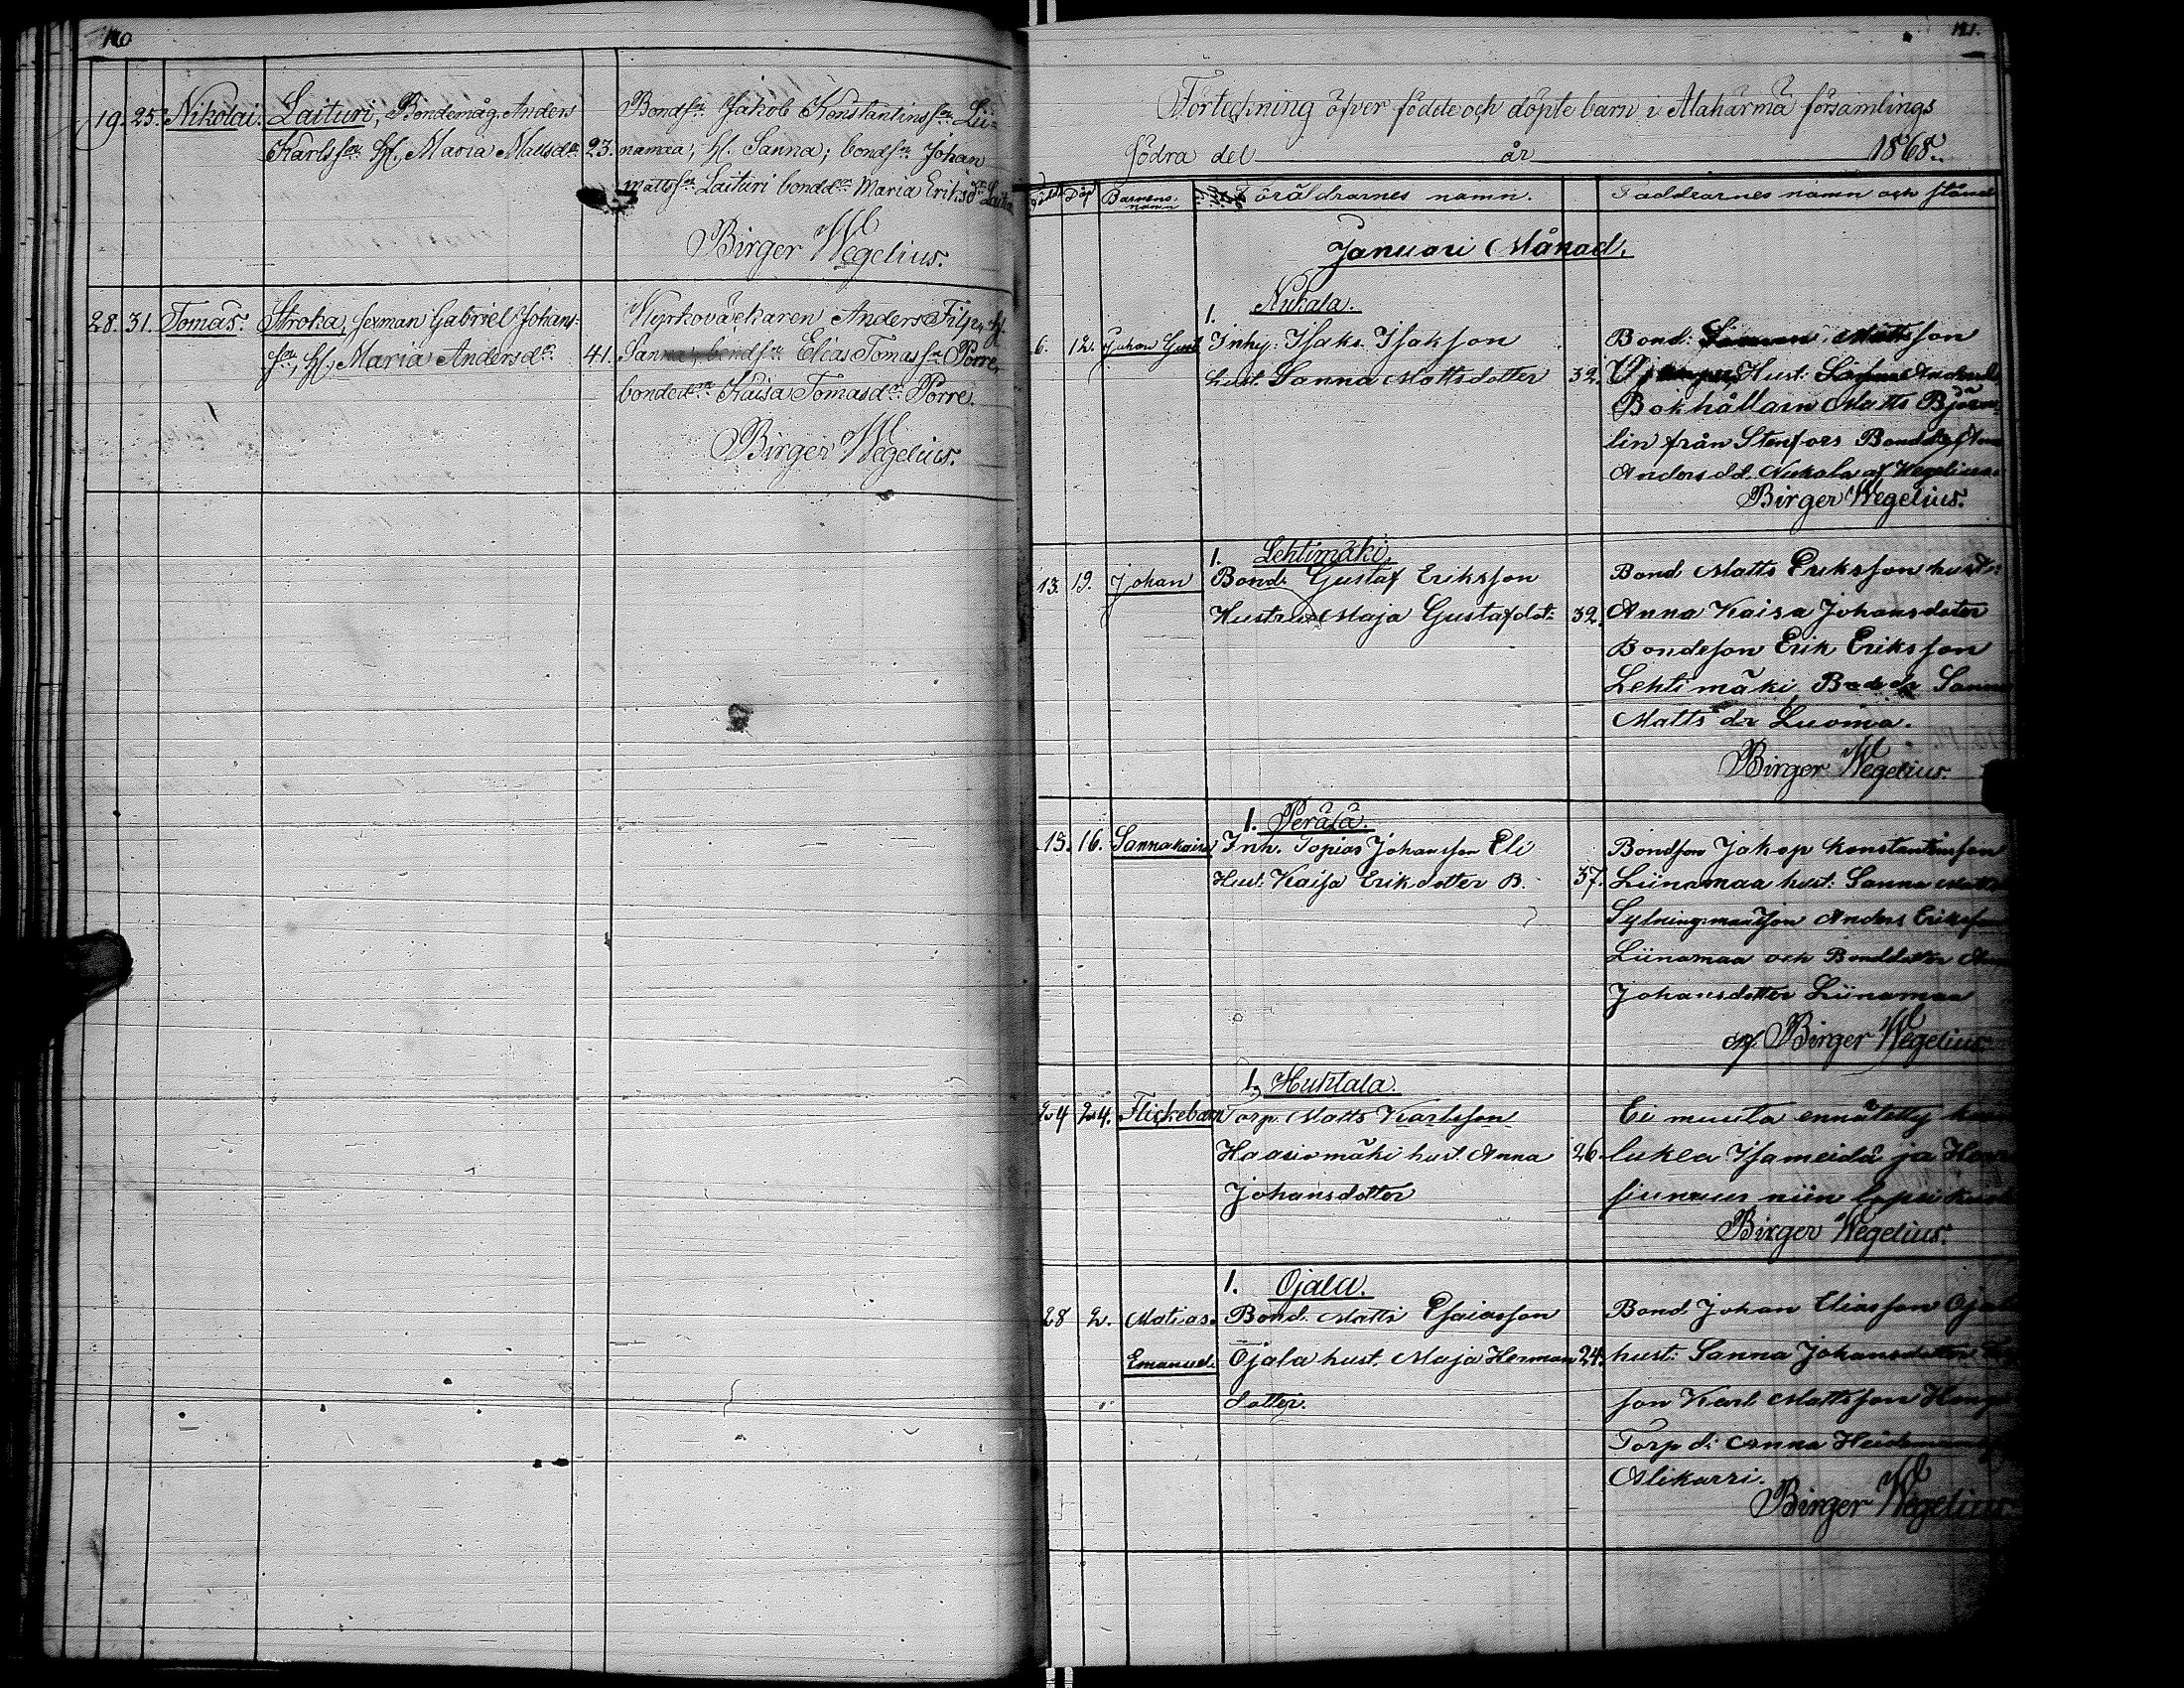 110
19. 25. Nikolai. Laituri, Bondemåg Anders
Karlsson h. Maria Mattsdr 23.
Bondsn Jakob Konstantinssn Lii=
namaa, h. Sanna; bondsn Johan
Mattssn Laituri bonddr Maria Eriksdr
Birger Wegelius.
28. 31. Tomas. Stroka, sexman Gabriel Johans=
son, h. Maria Andersdr 41.
Kyrkoväckaren Anders Filp, h.
Sanna; bondsn Elias Tomassn Porre,
bondedr Kaisa Tomasdr Porre.
Birger Wegelius.
111.
Förteckning öfver födde och döpte barn i Alahärmä församlings
södra del år 1868.
Född Döp Barnens namn Föräldrarnes namn. Faddrarnes namn och stånd
Januari Månad.
1. Nukala.
6. 12. Johan Gust Inhy. Isak Isaksson
hust. Sanna Mattsdotter 32.
Bond: Mattsson
Hust:
Bokhållarn Matts Björn=
lin från Stenfors
Andersdd. Nukala af Wegelius.
Birger Wegelius.
1. Lehtimäki.
13. 19. Johan Bond. Gustaf Eriksson
Hustru Maja Gustafdot: 32.
Bond Matts Eriksson hust:
Anna Kaisa Johansdoter
Bondeson Erik Eriksson
Lehtimäki, Sanna
Matts dr Luoma.
Birger Wegelius.
1. Perälä.
15. 16. Sannakaisa Inh. Topias Johansson Eli
Hust: Kaisa Erikdotter B. 37.
Bondson Jakop Konstantinson
Liinamaa hust: Sanna
Sytningsmanson Anders Eriksson
Liinamaa och Bonddotter
Johansdotter Liinamaa
af. Birger Wegelius
1. Huhtala.
24 24. Flickebarn Torp. Matts Karlsson
Haasiomäki hust. Anna 26.
Johansdotter
Ei muuta ennätetty
lukea Isameidä ja
siunaus niin
Birger Wegelius.
1. Ojala.
28 2. Matias Bond. Matti Esaiasson
Emanuel. Ojala hust. Maja Herman 24.
dotter.
Bond Johan Eliasson Ojala
hust: Sanna Johansdotter
son Karl Mattsson
Torp d: Anna
Alikarri.
Birger Wegelius